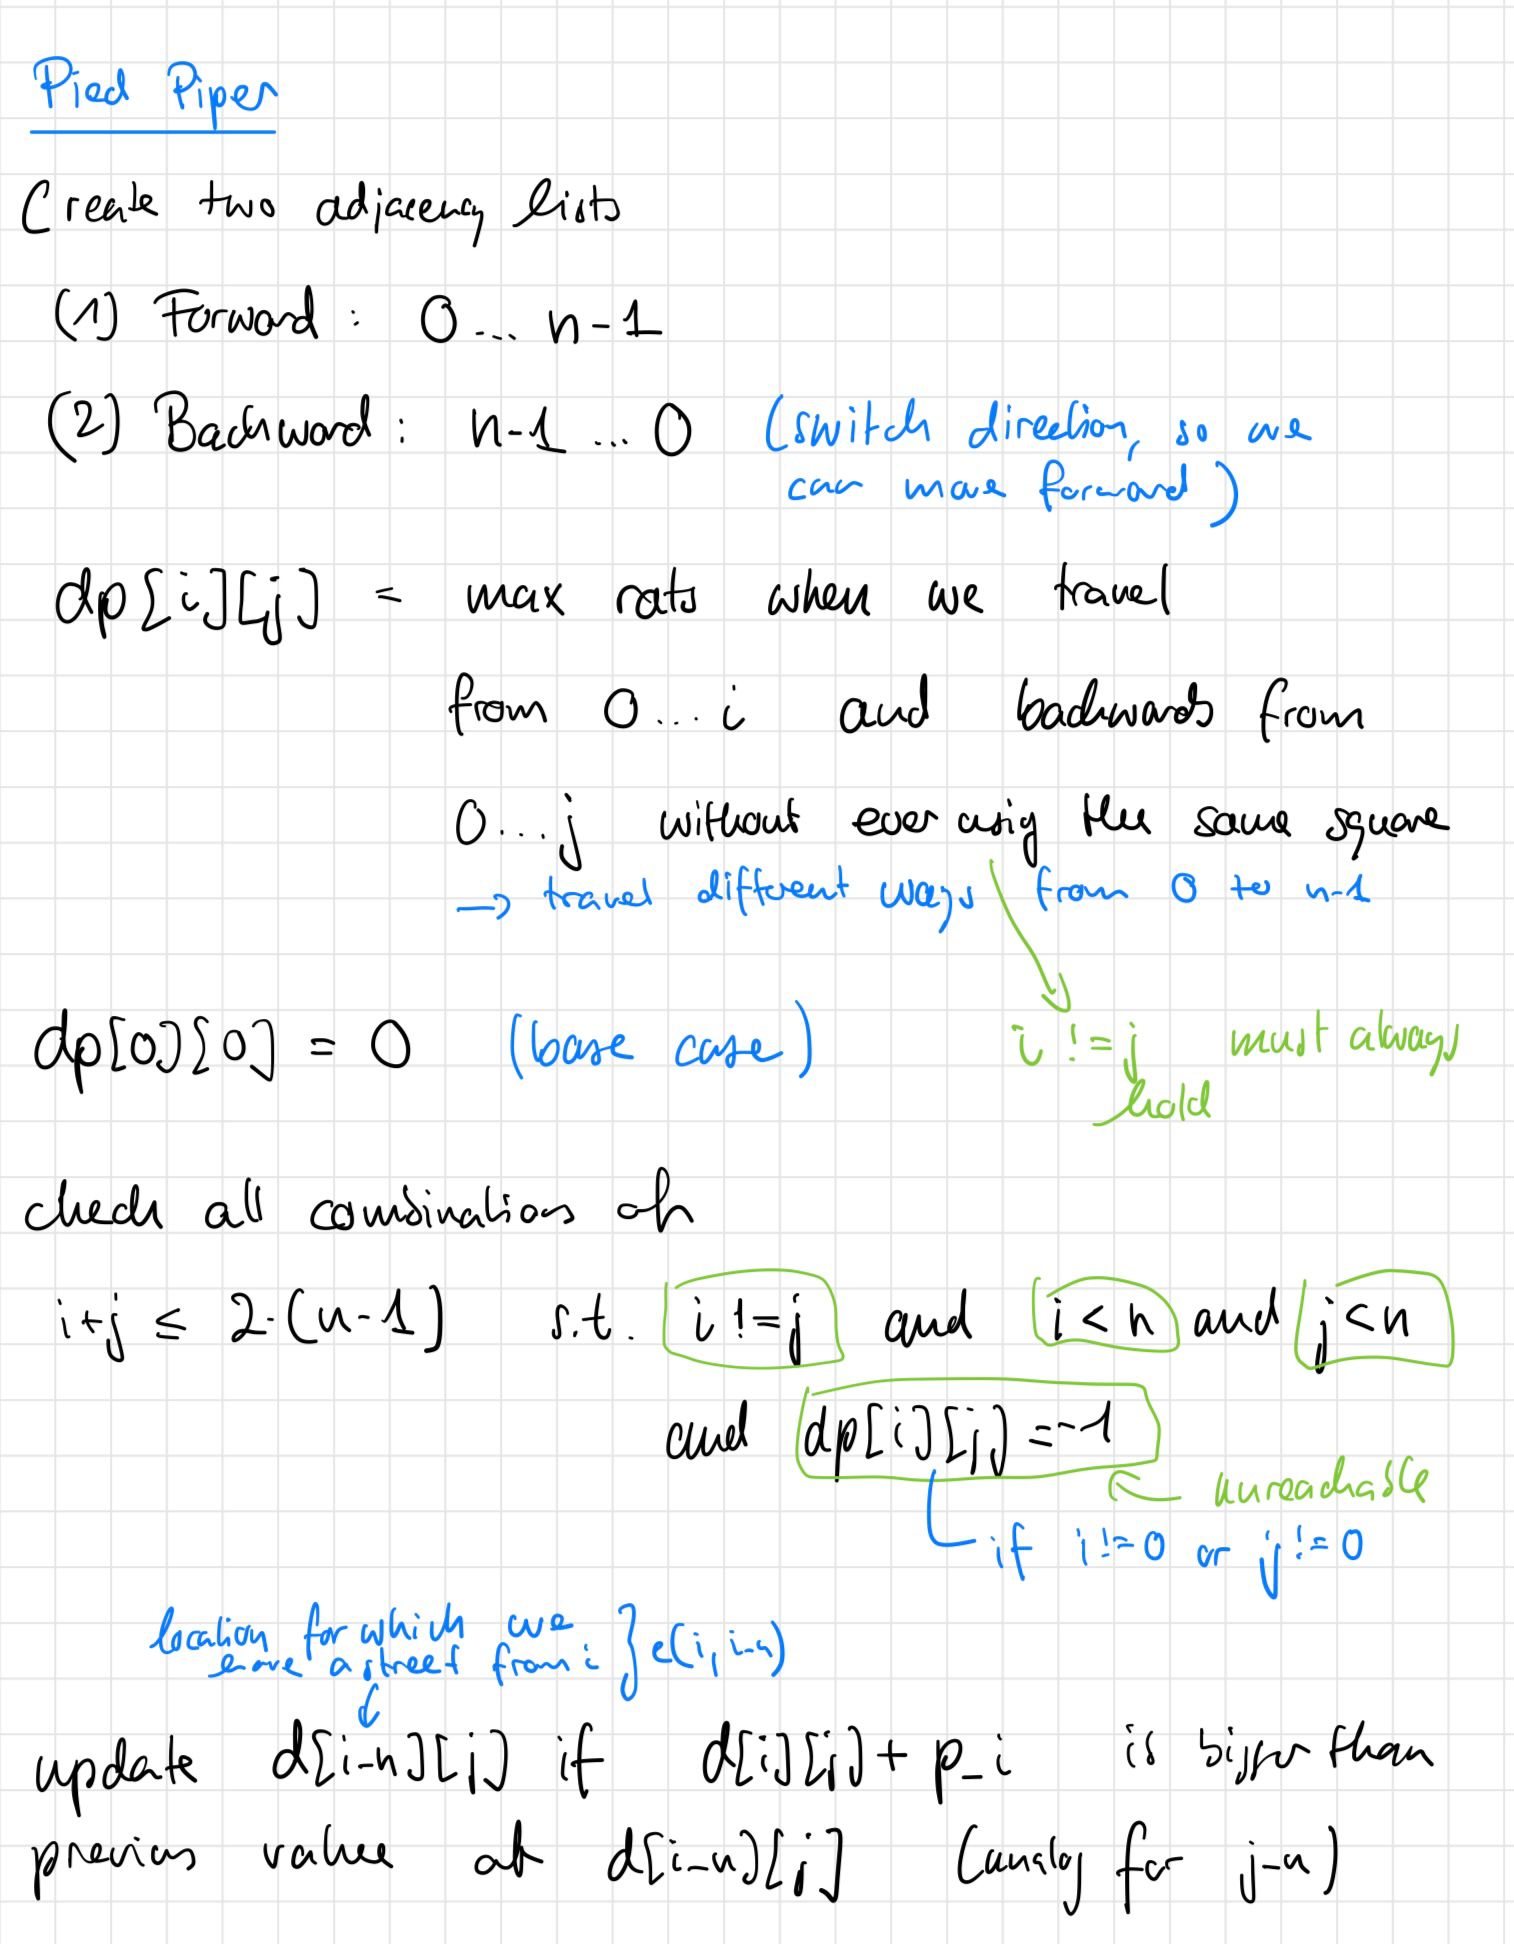 Pied Piper
Create two adjacency lists
(1) Forward : 0 ... n-1
(2) Backward : n-1 ... 0 (switch direction, so we
can move forward)
dp[i][j] = max rats when we travel
from 0 ... i and backwards from
0 ... j without ever using the same square
→ travel different ways from 0 to n-1
dp[0][0] = 0 (base case) i != j must always
hold
check all combinations of
i+j ≤ 2·(n-1) s.t. i != j and i < n and j < n
and dp[i][j] = -1
unreachable
if i != 0 or j != 0
location for which we
have a street from i } e(i, i-n)
update d[i-n][j] if d[i][j] + p_i is bigger than
previous value at d[i-n][j] (analog for j-n)